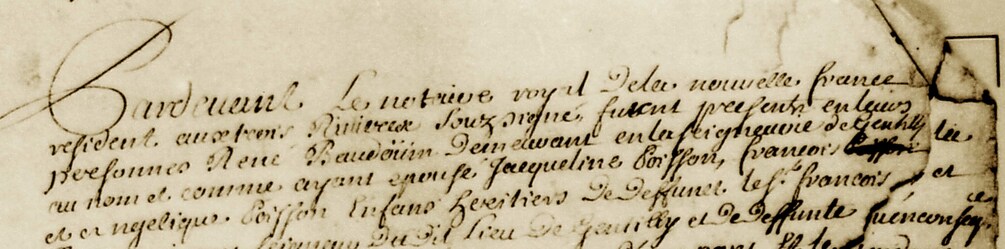 Pardevant Le notaire royal Dela nouvelle france
resident aux trois Rivieres Souz signé, furent presents en leurs
personnes René Baudouin Demeurant en la seigneurie de Gentilly
au nom et comme ayant epousé Jacqueline Poisson, francois Poisson
et engelique Poisson Enfans heritiers De deffunct le Sr. francois et
Seigneur Du dit Lieu De Gentilly et De deffunte